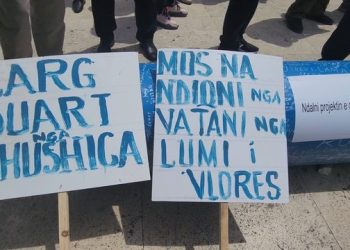 LARG
DUART
NGA
SHUSHICA
MOS NA
NDIQNI NGA
VATANI NGA
LUMI I
VLORES
Ndalni projektin e